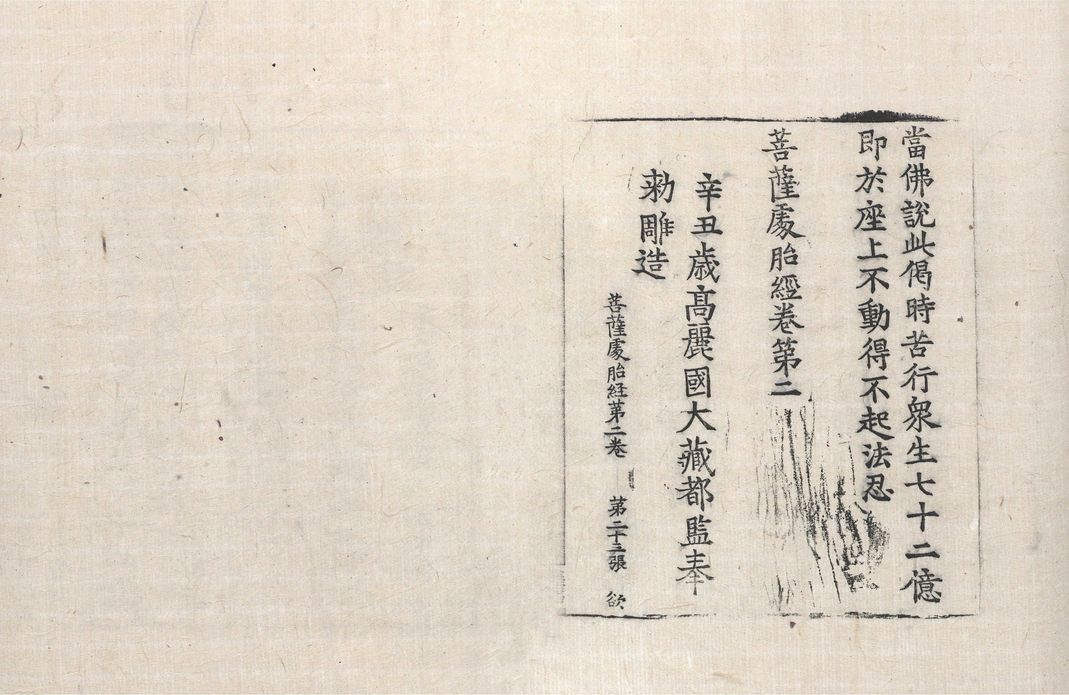 當佛說此偈時苦行衆生七十二億
即於座上不動得不起法忍
菩薩處胎經卷第二
辛丑歲高麗國大藏都監奉
勅雕造
菩薩處胎経第二卷 第二十三張 欲